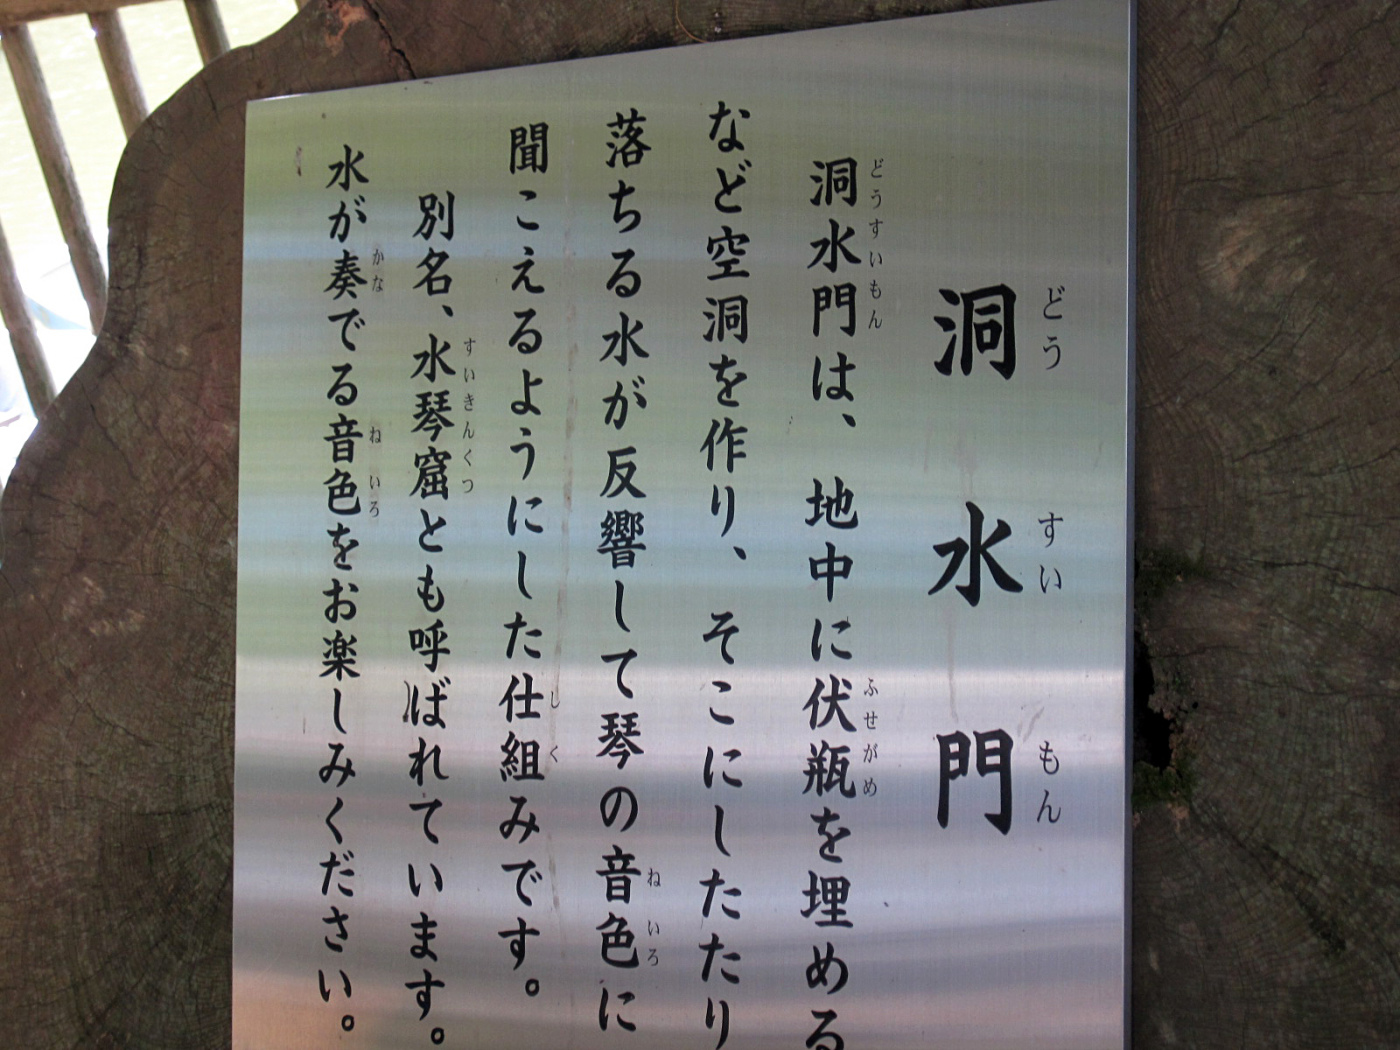 洞水門
どうすいもん
洞水門は、地中に伏瓶を埋める
どうすいもん
ふせがめ
など空洞を作り、そこにしたたり
落ちる水が反響して琴の音色に
ねいろ
聞こえるようにした仕組みです。
しく
別名、水琴窟とも呼ばれています。
すいきんくつ
水が奏でる音色をお楽しみください。
かな
ねいろ